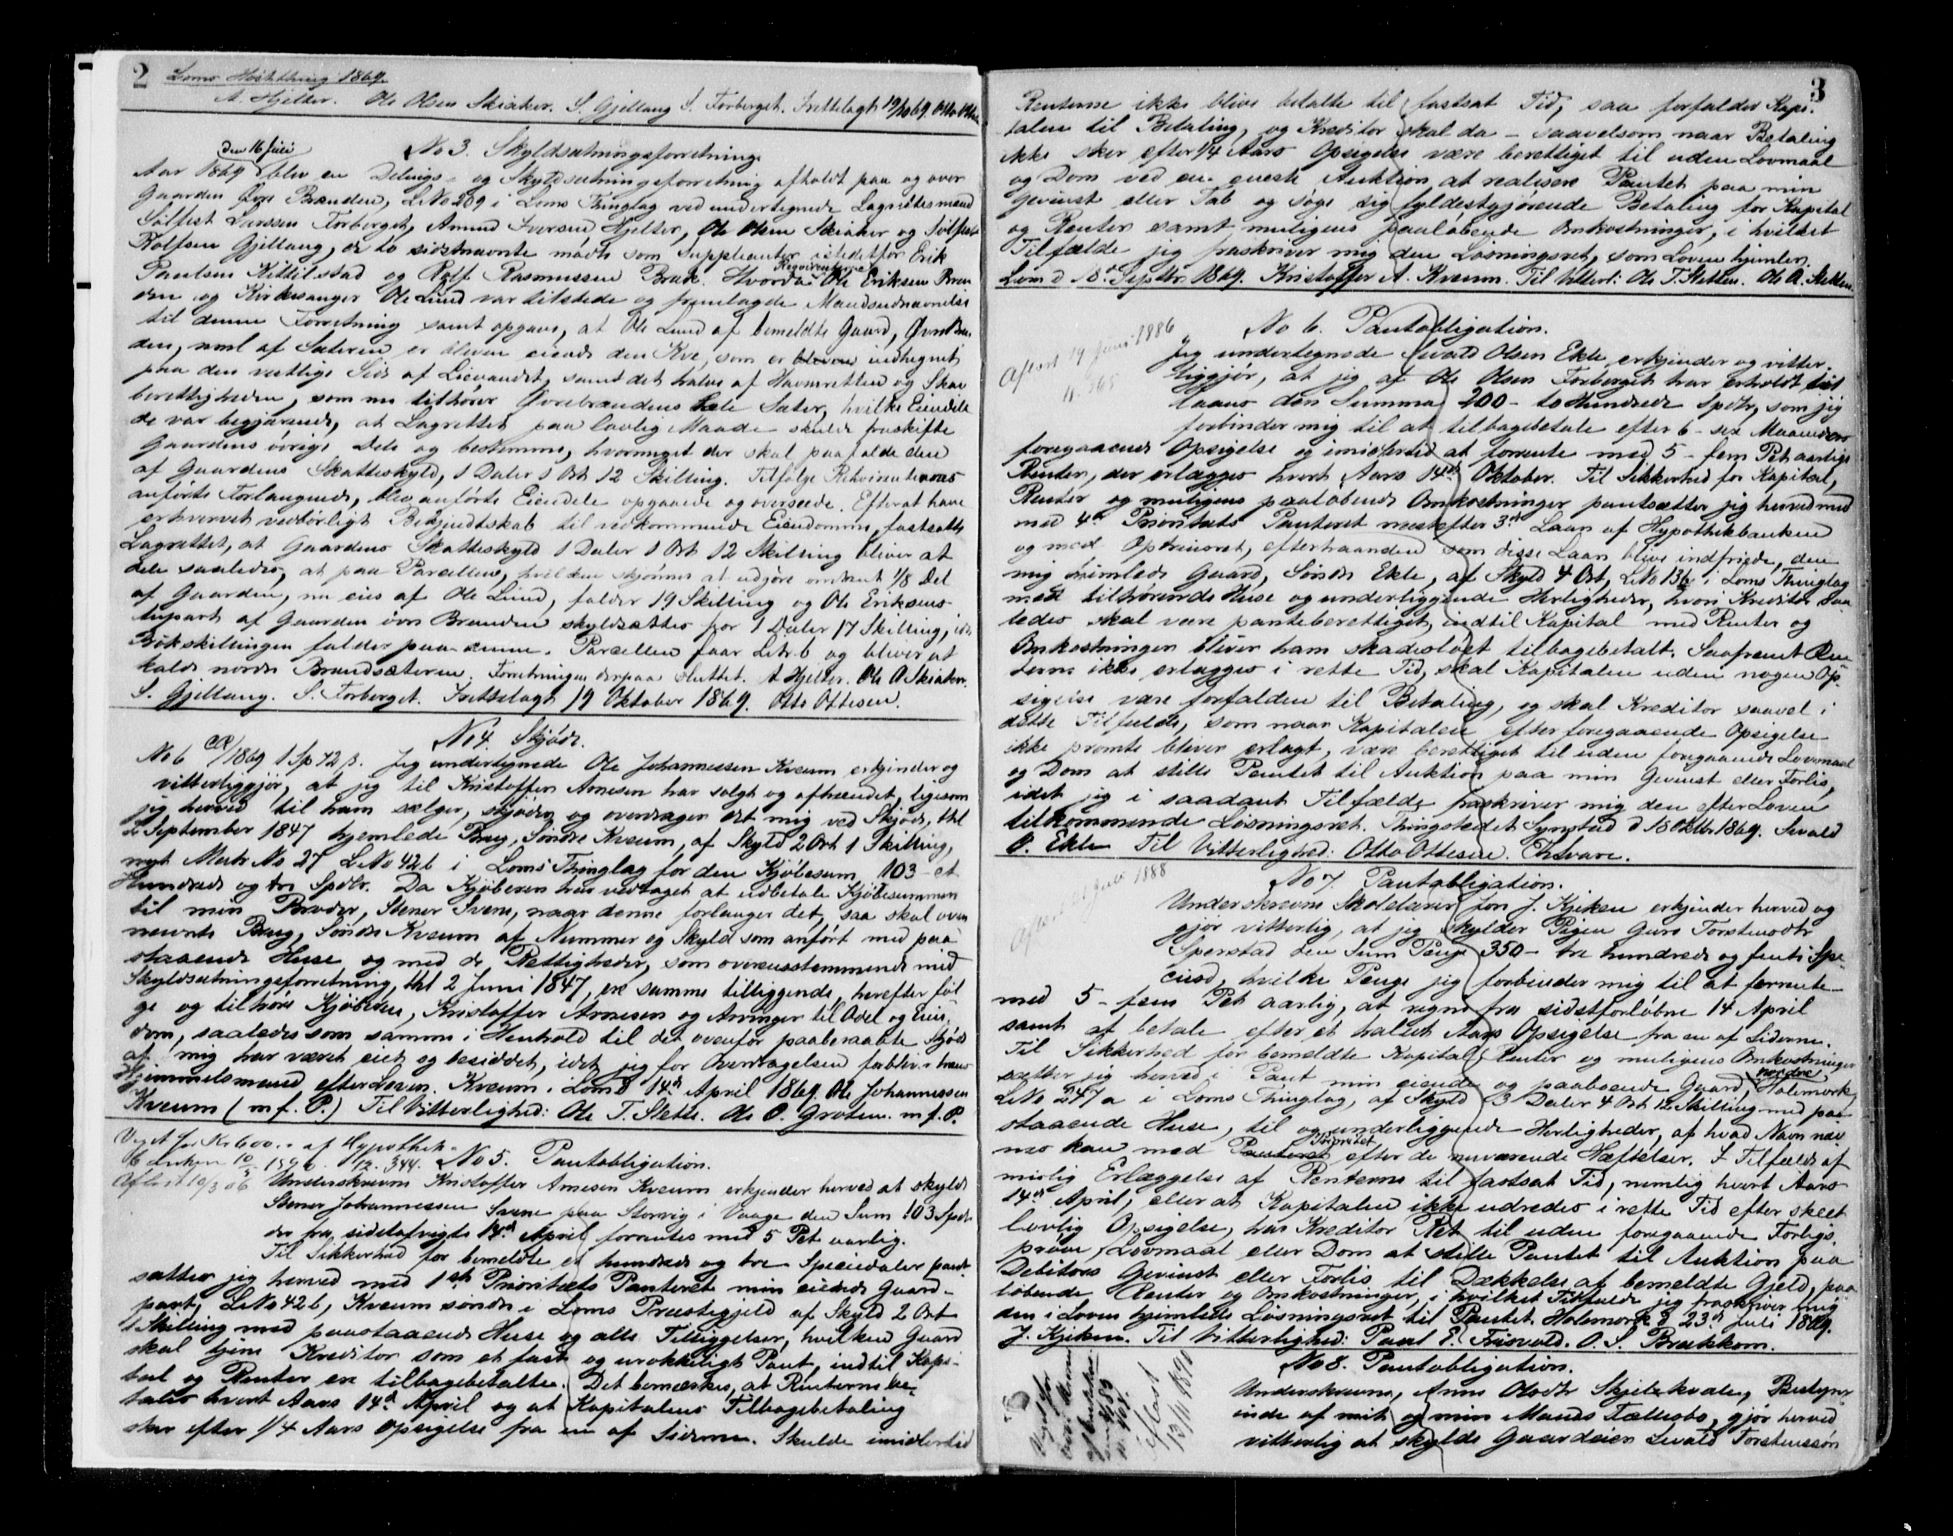 2 Loms Høstthing 1869.
A. Hjelter. Ole Olsen Skiaker. S. Gjellaug S. Forberget. Irettelagt 19/10 69. Otto Ottesen
No 3. Skyldsætningsforretning.
den 16 Juli
Aar 1869 blev en Delings- og Skyldsætningsforretning afholdt paa og over
Gaarden Øvre Brænden, LNo 209 i Loms Thinglag ved undertegnede Lagrettesmænd
Sylfest Larssen Forberget, Amund Iversen Hjelter, Ole Olsen Skiaker og Sylfest
Rolfsen Gjellaug, de to sidstnævnte mødte som Suppleanter istedetfor Erik
Paulsen Kittilstad og Rolf Rasmussen Bræk. Hvorda Requirenterne Ole Eriksen Bræn
den og Kirkesanger Ole Lund var tilstede og fremlagde Mandsudnævnelse
til denne Forretning samt opgave, at Ole Lund af bemeldte Gaard, Øvre Bræn
den, neml af Sæteren er bleven eiende den Kve, som er bleven indhegnet
paa den vestlige Side af Lievandet, samt det halve af Havneretten og Skov
berettigheden, som nu tilhører Øvrebrændens hele Sæter, hvilke Eiendele
de var begjærende, at Lagrettet paa lovlig Maade skulde fraskifte
Gaardens øvrige Dele og bestemme, hvormeget der skal paafalde dem
af Gaardens Skatteskyld, 1 Daler 1 Ort 12 Skilling. Tilfølge Rekvirenternes
anførte Forlangende, blev anførte Eiendele opgaaede og overseede. Efterat have
erhvervet vedbørligt Bekjendtskab til vedkommende Eiendomme, fastsatte
Lagrettet, at Gaardens Skatteskyld 1 Daler 1 Ort 12 Skilling bliver at
dele saaledes, at paa Parcellen, hvilken skjønnes at udgjøre omtrent 1/8 Del
af Gaarden, nu eies af Ole Lund, falder 19 Skilling og Ole Eriksens
Eiepart af Gaarden øvre Brænden skyldsættes for 1 Daler 17 Skilling, idet
Brøkskillingen falder paa denne. Parcellen faar Litr. b og bliver at
kalde nordre Brændsæteren. Forretningen derpaa sluttet. A Hjelter. Ole O Skiaker.
S. Gjellaug. S. Forberget. Irettelagt 19 Oktober 1869. Otto Ottesen.
No 4. Skjøde.
No 6 CR/1869 1 Sp 72 β. Jeg undertegnede Ole Johannessen Kveum erkjender og
vitterliggjør, at jeg til Kristoffer Arnesen har solgt og afhændet, ligesom
jeg herved til ham sælger, skjøder og overdrager det mig ved Skjøde, thl
2 September 1847 hjemlede Brug, Søndre Kveum, af Skyld 2 Ort 1 Skilling,
nyt Matr No 27 LNo 42b i Loms Thinglag for den Kjøbesum 103 - et
Hundrede og tre Spdlr. Da Kjøberen har vedtaget at udbetale Kjøbesummen
til min Broder, Stener Svene, naar denne forlanger det, saa skal oven
nævnte Brug, Søndre Kveum af Nummer og Skyld som anført med paa
staaende Huse og med de Rettigheder, som overensstemmende med
Skyldsætningsforretning, thl 2 Juni 1847, ere samme tilliggende, herefter føl
ge og tilhøre Kjøberen, Kristoffer Arnesen og Arvinger til Odel og Eien
dom, saaledes som samme i Henhold til det ovenfor paaberaabte Skjøde
af mig har været eiet og besiddet, idet jeg for Overdragelsen forbliver hans
Hjemmelsmand efter Loven. Kveum i Lom d 14de April 1869. Ole Johannessen
Kveum (m. f. P.) Til Vitterlighed: Ole T. Stette. Ole O. Groten. m. f. P.
Veget for Kr 600.- af Hypothek-
banken 10/3 1896. 12. 344. No 5. Pantobligation.
Aflæst 10/3 06 Underskrevne Kristoffer Arnesen Kveum erkjender herved at skylde
Stener Johannessen Svene paa Storvig i Vaage den Sum 103 Spd.
der fra sidstafvigte 14de April forrentes med 5 Pct aarlig.
Til Sikkerhed for bemeldte et hundrede og tre Speciedaler pant
sætter jeg herved med 1ste Prioritets Panteret min eiende Gaard-
part, LNo 42b, Kveum søndre i Loms Præstegjeld af Skyld 2 Ort
1 Skilling med paastaaende Huse og alle Tilliggelser, hvilken Gaard
skal tjene Kreditor som et fast og urokkeligt Pant, indtil Kapi-
tal og Renter ere tilbagebetalte. Det bemærkes, at Renterne be-
tales hvert Aars 14de April og at Kapitalens Tilbagebetaling
sker efter 1/4 Aars Opsigelse fra en af Siderne. Skulde imidlertid
3
Renterne ikke blive betalte til fastsat Tid, saa forfalder Kapi-
talen til Betaling, og Kreditor skal da - saavelsom naar Betaling
ikke sker efter 1/4 Aars Opsigelse være berettiget til uden Lovmaal
og Dom ved en eneste Auktion at realisere Pantet paa min
Gevinst eller Tab og søge sig fyldestgjørende Betaling for Kapital
og Renter samt muligens paaløbende Omkostninger, i hvilket
Tilfælde jeg fraskriver mig den Løsningsret, som Loven hjemler.
Lom d 15de Septbr. 1869. Kristoffer A. Kveum. Til Vitterl: Ole T. Stetten. Ole O. Stetten.
No 6. Pantobligation.
Aflæst 19 Juni 1886
N. 365
Jeg undertegnede Sivald Olsen Ekle erkjender og vitter
liggjør, at jeg af Ole Olsen Forberget har erholdt til
Laans den Summa 200 - to Hundrede Spdlr, som jeg
forbinder mig til at tilbagebetale efter 6 - sex Maaneders
foregaaende Opsigelse og imidlertid at forrente med 5 - fem Pct aarlige
Renter, der erlægges hvert Aars 14de Oktober. Til Sikkerhed for Kapital,
Renter og muligens paaløbende Omkostninger pantsætter jeg herved med
med 4de Prioritets Panteret næstefter 3de Laan af Hypothekbanken
og med Oprinsret, efterhaanden som disse Laan blive indfriede, den
mig hjemlede Gaard, Søndre Ekle, af Skyld 4 Ort, LNo 136 i Loms Thinglag
med tilhørende Huse og underliggende Herligheder, hvori Kreditor saa
ledes skal være panteberettiget, indtil Kapital med Renter og
Omkostninger bliver ham skadesløst tilbagebetalt. Saafremt Ren
terne ikke erlægges i rette Tid, skal Kapitalen uden nogen Op-
sigelse være forfalden til Betaling, og skal Kreditor saavel i
dette Tilfælde, som naar Kapitalen efter foregaaende Opsigelse
ikke promte bliver erlagt, være berettiget til uden foregaaende Lovmaal
og Dom at stille Pantet til Auktion paa min Gevinst eller Forlis,
idet jeg i saadant Tilfælde fraskriver mig den efter Loven
tilkommende Løsningsret. Thingstedet Synstad d 18 Oktbr. 1869. Sivald
O. Ekle Til Vitterlighed: Otto Ottesen. Th. Svare.
No 7. Pantobligation.
Aflæst 21 Juli 1888
Underskrevne Skolelærer Jon J. Kjæken erkjender herved og
gjør vitterlig, at jeg skylder Pigen Guro Torstensdtr
Sperstad den Sum Penge 350 - tre hundrede og femti Spe-
ciesd, hvilke Penge jeg forbinder mig til at forrente
med 5 - fem Pct aarlig, at regne fra sidstforløbne 14 April
samt at betale efter et halvt Aars Opsigelse fra en af Siderne.
Til Sikkerhed for bemeldte Kapital, Renter og muligens Omkostninger
sætter jeg herved i Pant min eiende og paaboende Gaard, nordre Holemork,
LNo 247a i Loms Thinglag, af Skyld 3 Daler 4 Ort 12 Skilling med paa
staaende Huse, til og underliggende Herligheder, af hvad Navn næv
nes kan, med Panteret Førsteret efter de nuværende Hæftelser. I Tilfælde af
mislig Erlæggelse af Renterne til fastsat Tid, nemlig hvert Aars
14de April, eller at Kapitalen ikke udredes i rette Tid efter skeet
lovlig Opsigelse, har Kreditor Ret til uden foregaaende Forligs-
prøve, Lovmaal eller Dom at stille Pantet til Auktion paa
Debitors Gevinst eller Forlis til Dækkelse af bemeldte Gjeld, paa
løbende Renter og Omkostninger, i hvilket Tilfælde jeg fraskriver mig
den i Loven hjemlede Løsningsret til Pantet. Holemork d 23de Juli 1869.
J. Kjæken. Til Vitterlighed: Paul E. Frisvold. O. S. Brækkom.
No 8. Pantobligation.
Aflæst
13/11 1890
Underskrevne, Anne Olsdtr Skjelkvale, Bestyr
inde af mit og min Mands Fællesbo, gjør herved
vitterlig at skylde Gaardeier Sivald Torstenssøn